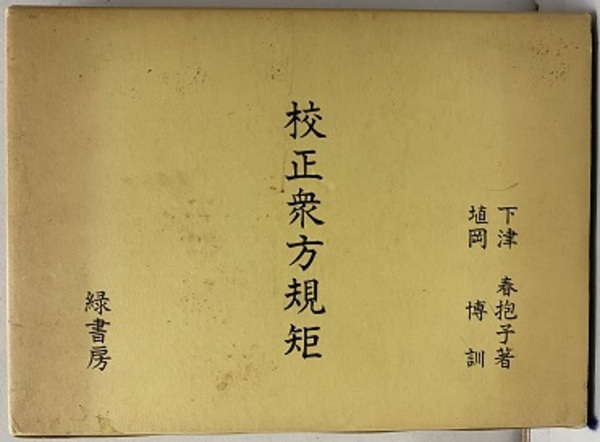 下津 春抱子著
埴岡 博 訓
校正衆方規矩
緑書房